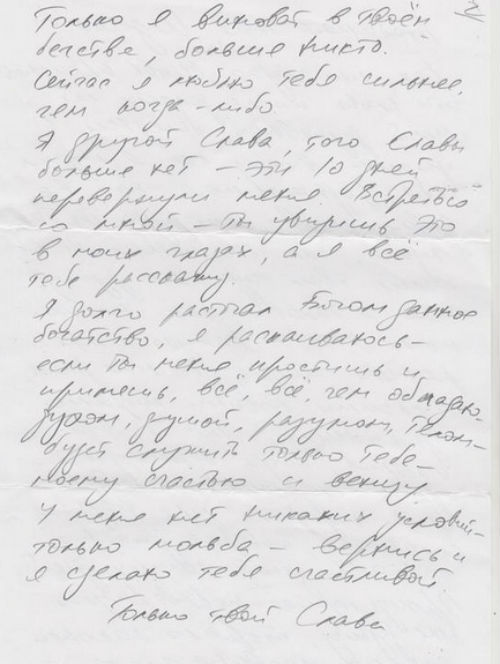 2
Только я виноват в твоём
бегстве, больше никто.
Сейчас я люблю тебя сильнее,
чем когда-либо.
Я другой Слава, того Славы
больше нет – эти 10 дней
перевернули меня. Встреться
со мной – ты увидишь это
в моих глазах, а я всё
тебе расскажу.
Я долго растрачивал Богом данное
богатство, я раскаиваюсь –
если ты меня простишь и
примешь, всё, всё, чем обладаю,
духом, душой, разумом, телом –
будет служить только тебе –
моему счастью и венцу
У меня нет никаких условий –
только мольба – вернись и
я сделаю тебя счастливой
Только твой Слава